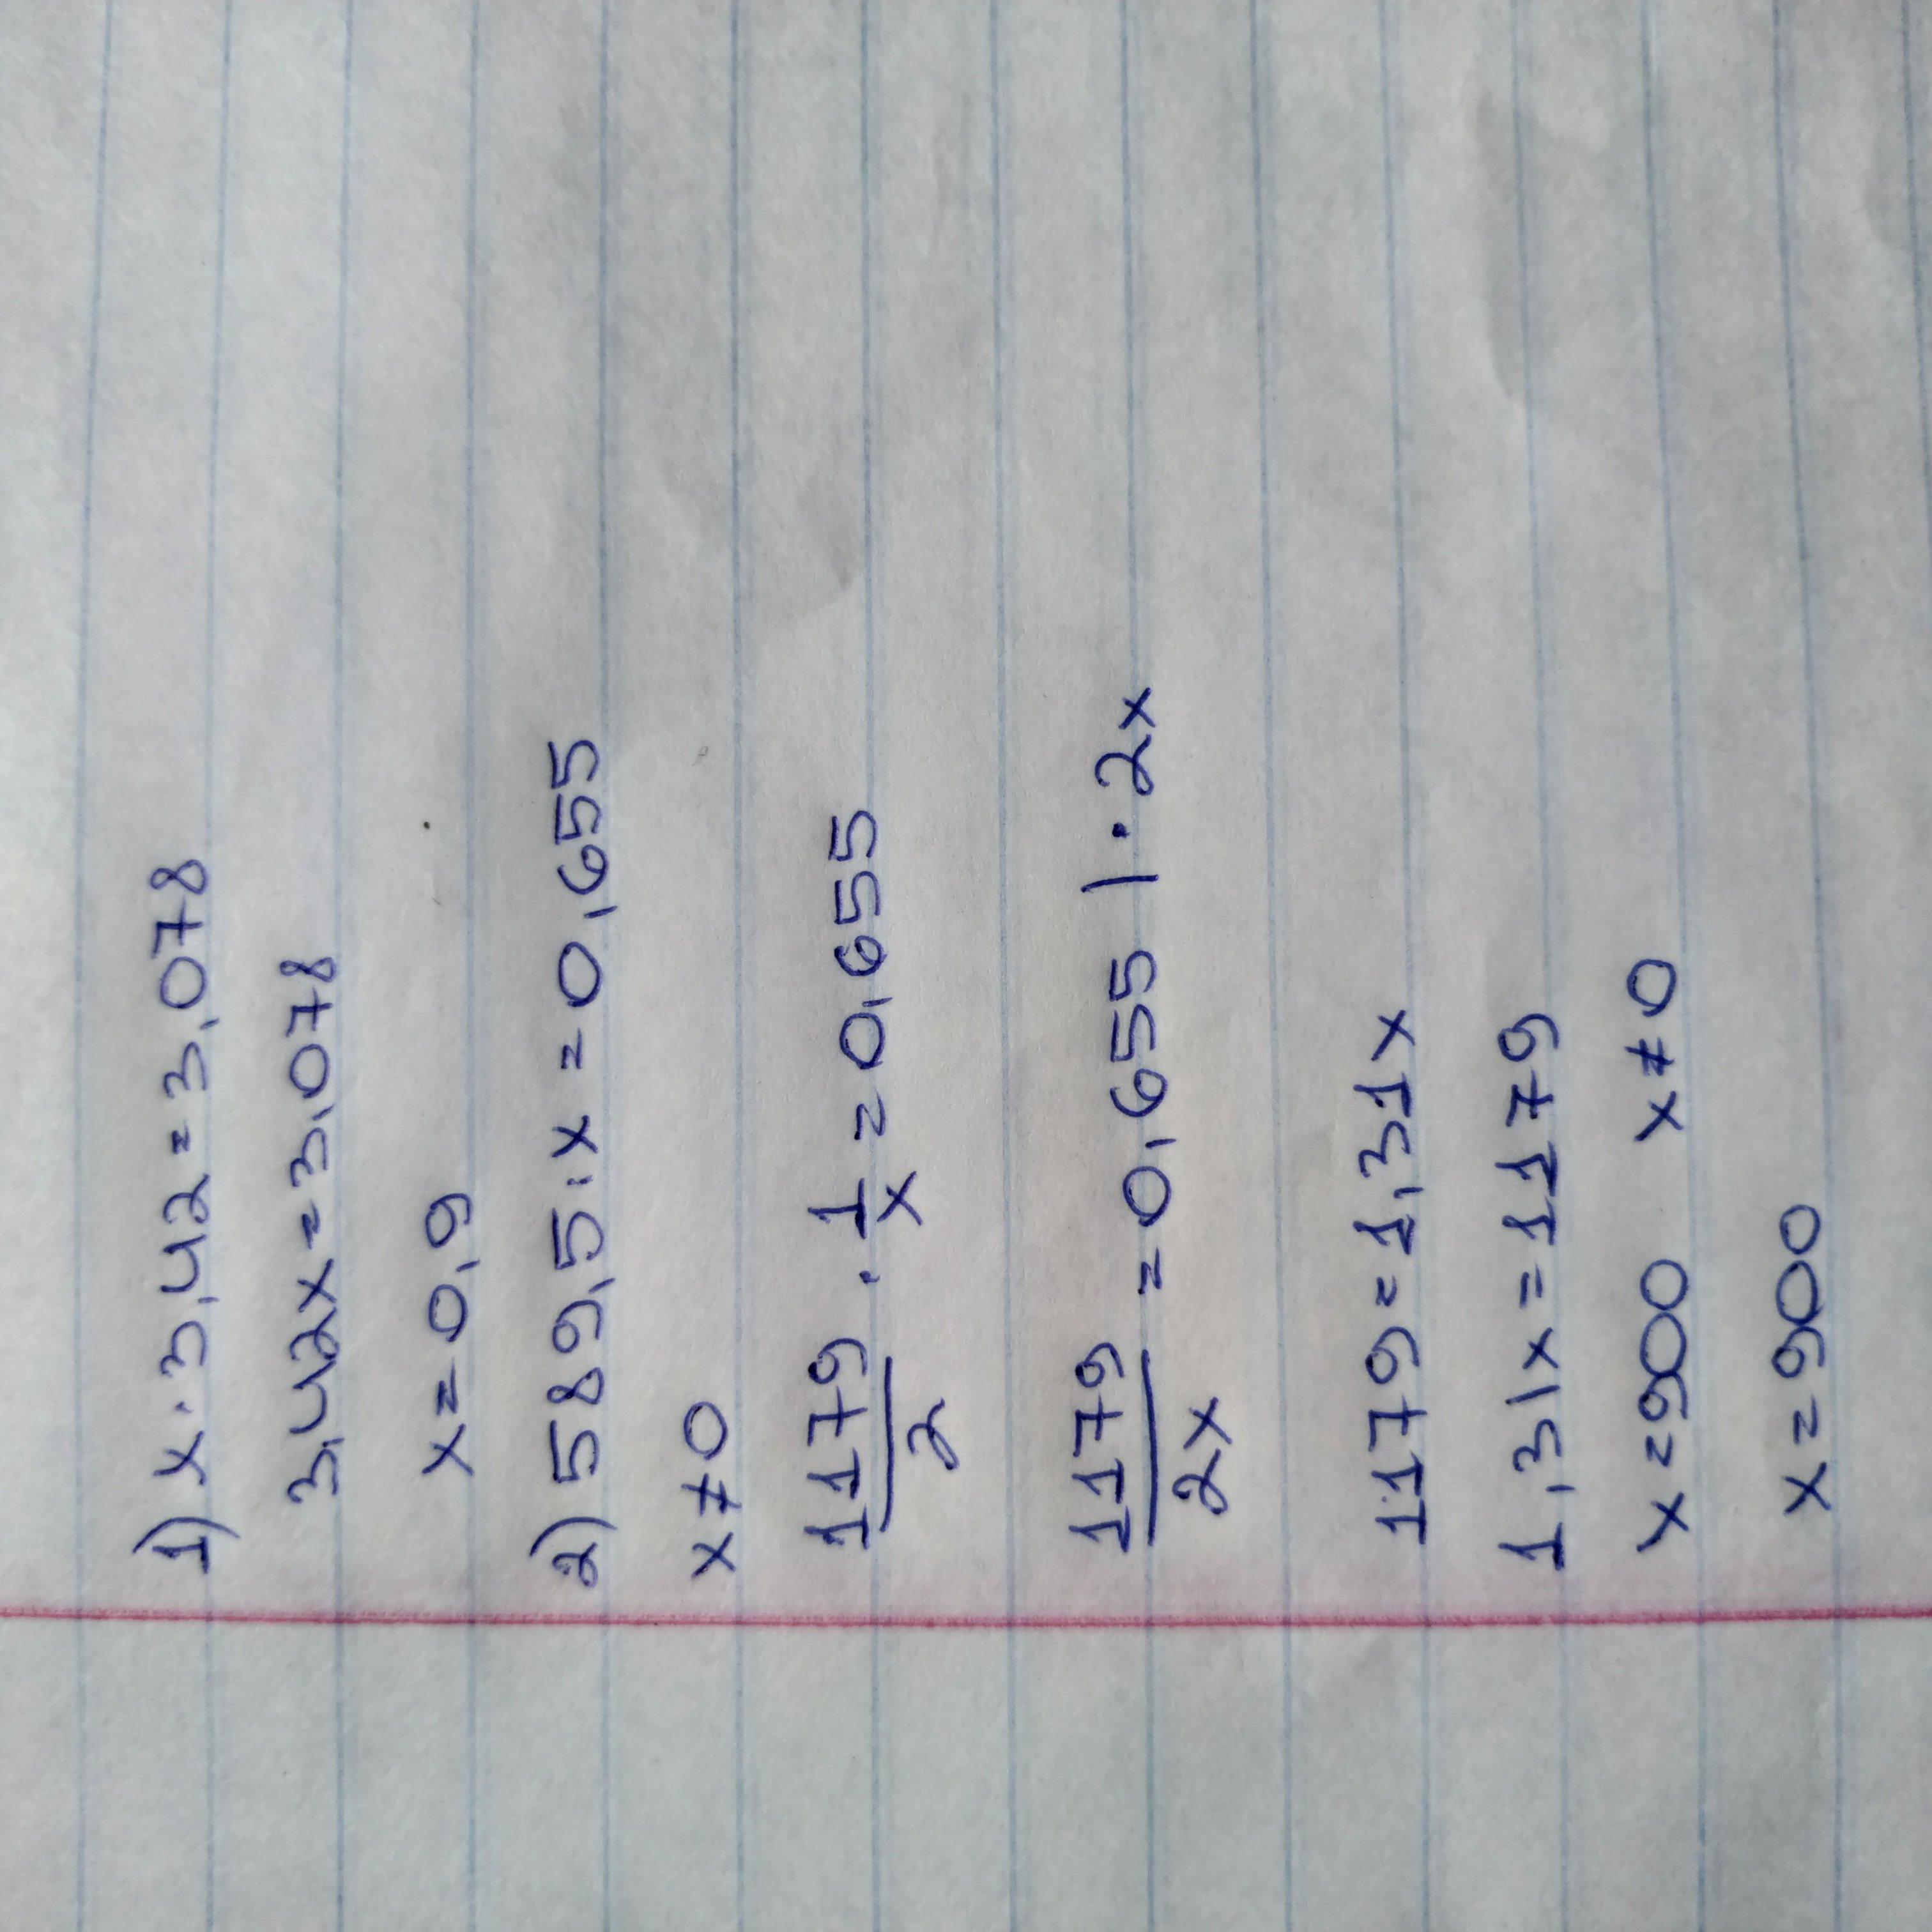 1) x · 3,42 = 3,078
3,42x = 3,078
x = 0,9
2) 589,5 : x = 0,655
x ≠ 0
1179/2 · 1/x = 0,655
1179/2x = 0,655 | · 2x
1179 = 1,31x
1,31x = 1179
x = 900 x ≠ 0
x = 900